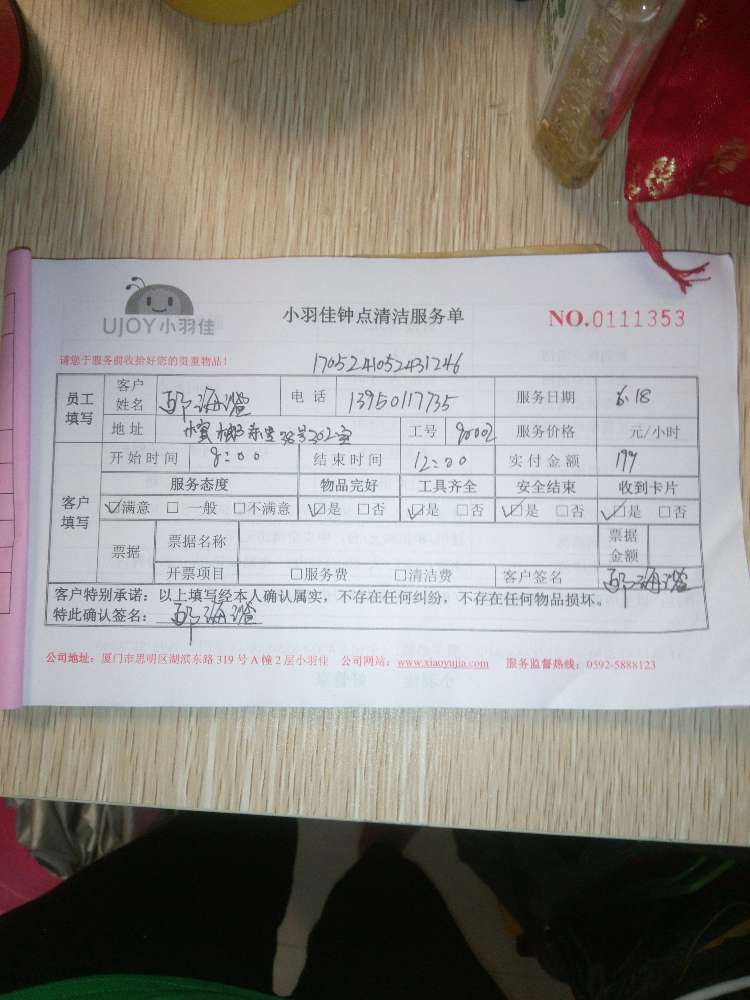 UJOY小羽佳
小羽佳钟点清洁服务单
NO.0111353
请您于服务前收拾好您的贵重物品！
1705241052431246
员工填写
客户姓名
电话 13950117735 服务日期 6.18
地址 38号202室 工号 90002 服务价格 元/小时
客户填写
开始时间 9:00 结束时间 12:00 实付金额 199
服务态度 物品完好 工具齐全 安全结束 收到卡片
☑满意 □ 一般 □不满意 ☑是 □否 ☑是 □否 ☑是 □否 ☑是 □否
票据 票据名称 票据金额
开票项目 □服务费 □清洁费 客户签名
客户特别承诺：以上填写经本人确认属实，不存在任何纠纷，不存在任何物品损坏。
特此确认签名：
公司地址：厦门市思明区湖滨东路 319 号 A 幢 2 层小羽佳 公司网站：www.xiaoyujia.com 服务监督热线：0592-5888123